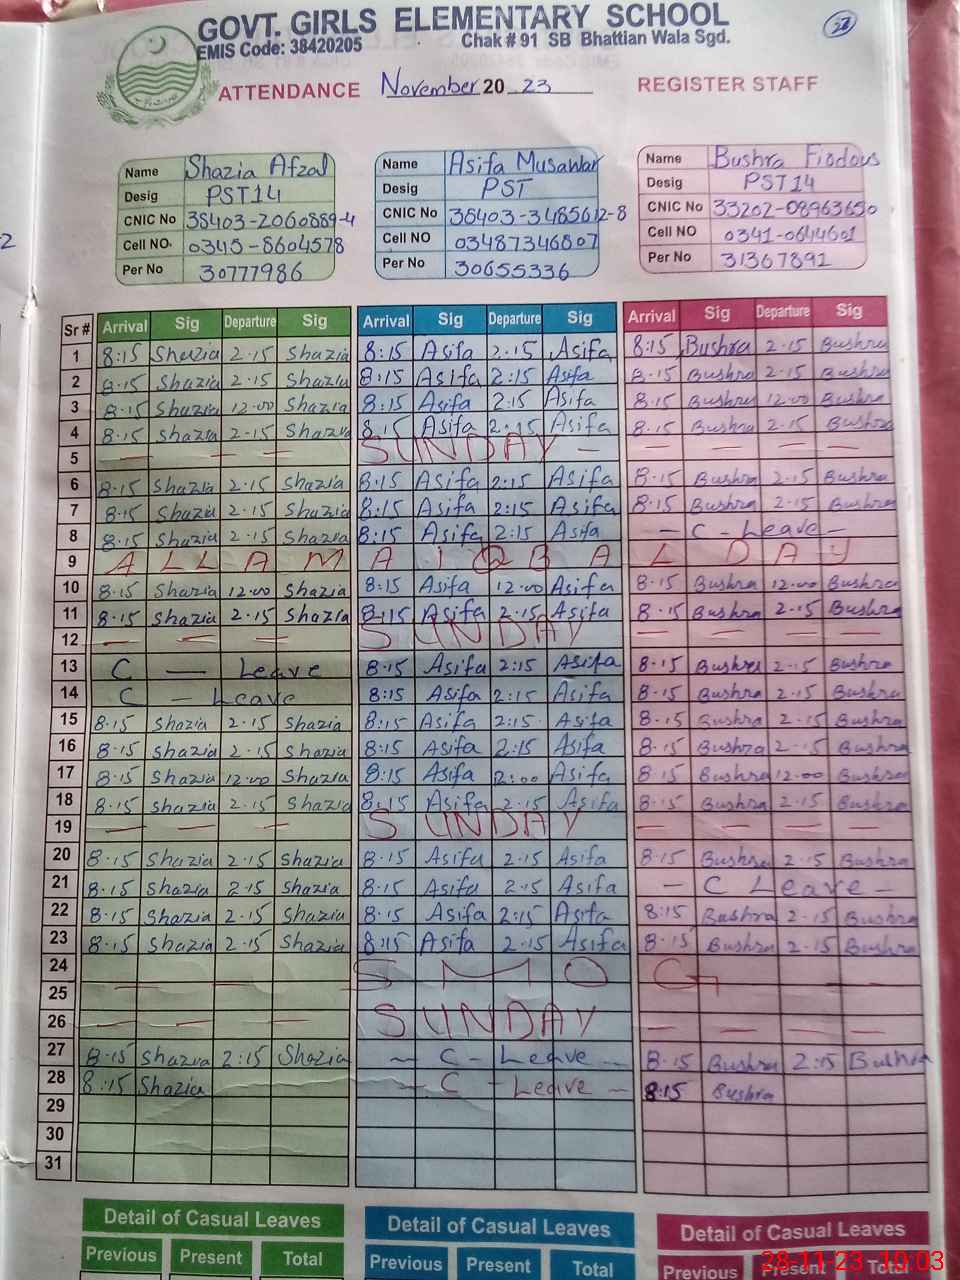 GOVT. GIRLS ELEMENTARY SCHOOL
EMIS Code: 38420205 Chak # 91 SB Bhattian Wala Sgd.
28
ATTENDANCE November 20 23 REGISTER STAFF
Name Shazia Afzal Name Asifa Musawar Name Bushra Firdous
Desig PST14 Desig PST Desig PST14
CNIC No 38403-2060889-4 CNIC No 38403-3485612-8 CNIC No 33202-08963650
Cell NO. 0345-8604578 Cell NO 03487346807 Cell NO 0341-0644601
Per No 30777986 Per No 30655336 Per No 31367891
Sr # Arrival Sig Departure Sig Arrival Sig Departure Sig Arrival Sig Departure Sig
1 8:15 Shazia 2-15 Shazia 8:15 Asifa 2:15 Asifa 8:15 Bushra 2-15 Bushra
2 8:15 Shazia 2-15 Shazia 8:15 Asifa 2:15 Asifa 8-15 Bushra 2-15 Bushra
3 8-15 Shazia 12-00 Shazia 8:15 Asifa 2:15 Asifa 8:15 Bushra 12-00 Bushra
4 8-15 Shazia 2-15 Shazia 8:15 Asifa 2:15 Asifa 8-15 Bushra 2-15 Bushra
5 — — — SUNDAY — — — — —
6 8-15 Shazia 2-15 Shazia 8:15 Asifa 2:15 Asifa 8-15 Bushra 2-15 Bushra
7 8:15 Shazia 2-15 Shazia 8:15 Asifa 2:15 Asifa 8-15 Bushra 2-15 Bushra
8 8:15 Shazia 2-15 Shazia 8:15 Asifa 2:15 Asifa — C - Leave -
9 ALLAMA IQBAL DAY
10 8:15 Shazia 12-00 Shazia 8:15 Asifa 12-00 Asifa 8-15 Bushra 12-00 Bushra
11 8-15 Shazia 2-15 Shazia 8:15 Asifa 2-15 Asifa 8-15 Bushra 2-15 Bushra
12 — — — SUNDAY — — — —
13 C — Leave 8-15 Asifa 2:15 Asifa 8-15 Bushra 2-15 Bushra
14 C — Leave 8:15 Asifa 2:15 Asifa 8-15 Bushra 2-15 Bushra
15 8-15 Shazia 2-15 Shazia 8:15 Asifa 2:15 Asifa 8-15 Bushra 2-15 Bushra
16 8-15 Shazia 2-15 Shazia 8:15 Asifa 2:15 Asifa 8-15 Bushra 2-15 Bushra
17 8-15 Shazia 12-00 Shazia 8:15 Asifa 2:00 Asifa 8-15 Bushra 12-00 Bushra
18 8-15 Shazia 2-15 Shazia 8:15 Asifa 2-15 Asifa 8-15 Bushra 2-15 Bushra
19 — — — SUNDAY — — — —
20 8-15 Shazia 2-15 Shazia 8-15 Asifa 2-15 Asifa 8:15 Bushra 2-15 Bushra
21 8-15 Shazia 2-15 Shazia 8-15 Asifa 2-15 Asifa — C Leave -
22 8-15 Shazia 2-15 Shazia 8-15 Asifa 2:15 Asifa 8:15 Bushra 2-15 Bushra
23 8-15 Shazia 2-15 Shazia 8:15 Asifa 2-15 Asifa 8-15 Bushra 2-15 Bushra
24 SMOG
25
26 — — SUNDAY — — — —
27 8-15 Shazia 2:15 Shazia — C - Leave — 8-15 Bushra 2:15 Bushra
28 8:15 Shazia — C - Leave — 8:15 Bushra
29
30
31
Detail of Casual Leaves Detail of Casual Leaves Detail of Casual Leaves
Previous Present Total Previous Present Total Previous Present Total
28-11-23 10:03